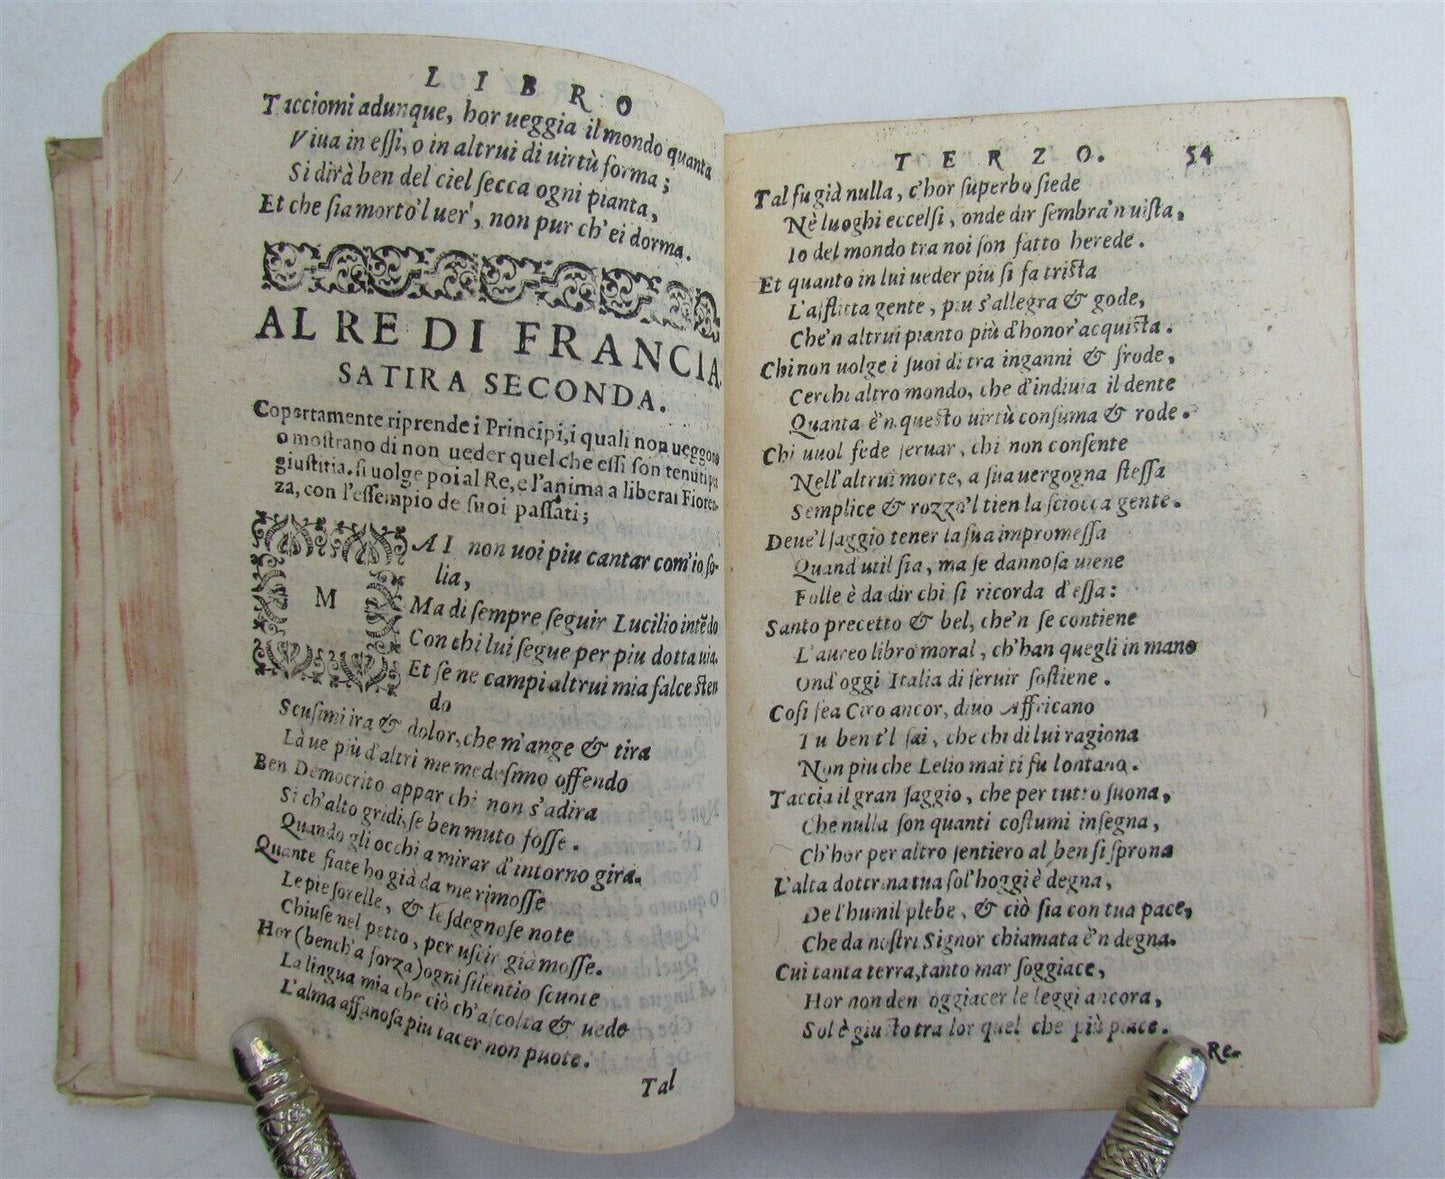 LIBRO
Tacciomi adunque, hor ueggia il mondo quanta
Viua in eſſi, o in altrui di uirtù forma;
Si dirà ben del ciel ſecca ogni pianta,
Et che ſia morto'l uer', non pur ch'ei dorma.
AL RE DI FRANCIA.
SATIRA SECONDA.
Copertamente riprende i Principi, i quali non ueggono
o moſtrano di non ueder quel che eſſi ſon tenuti per
giuſtitia. ſi uolge poi al Re, e l'anima a liberar Fioren-
za, con l'eſſempio de ſuoi paſſati;
MAI non uoi piu cantar com'io ſo-
lia,
Ma di ſempre ſeguir Lucilio intẽdo
Con chi lui ſegue per piu dotta uia.
Et ſe ne campi altrui mia falce ſten
do
Scuſimi ira & dolor, che m'ange & tira
Là ue più d'altri me medeſimo offendo
Ben Democrito appar chi non s'adira
Si ch'alto gridi, ſe ben muto foſſe.
Quando gli occhi a mirar d'intorno gira.
Quante fiate ho già da me rimoſſe
Le pie ſorelle, & le ſdegnoſe note
Chiuſe nel petto, per uſcir già moſſe.
Hor (bench'a forza) ogni ſilentio ſcuote
La lingua mia che ciò ch'aſcolta & uede
L'alma affanoſa piu tacer non puote.
Tal
TERZO. 54
Tal fu già nulla, c'hor ſuperbo ſiede
Nè luoghi eccelſi, onde dir ſembra'n uiſta,
Io del mondo tra noi ſon fatto herede.
Et quanto in lui ueder piu ſi fa triſta
L'afflitta gente, piu s'allegra & gode,
Che'n altrui pianto più d'honor'acquiſta.
Chi non uolge i ſuoi dì tra inganni & frode,
Cerchi altro mondo, che d'indiuia il dente
Quanta è'n queſto uirtù conſuma & rode.
Chi uuol fede ſeruar, chi non conſente
Nell'altrui morte, a ſua uergogna ſteſſa
Semplice & rozzo'l tien la ſciocca gente.
Deue'l ſaggio tener la ſua impromeſſa
Quand'util ſia, ma ſe dannoſa uiene
Folle è da dir chi ſi ricorda d'eſſa:
Santo precetto & bel, che'n ſe contiene
L'aureo libro moral, ch'han quegli in mano
Ond'oggi Italia di ſeruir ſoſtiene.
Coſi ſea Ciro ancor, diuo Affricano
Tu ben t'l ſai, che chi di lui ragiona
Non piu che Lelio mai ti fu lontano.
Taccia il gran ſaggio, che per tutto ſuona,
Che nulla ſon quanti coſtumi inſegna,
Ch'hor per altro ſentiero al ben ſi ſprona
L'alta dottrina tua ſol'hoggi è degna,
De l'humil plebe, & ciò ſia con tua pace,
Che da noſtri Signor chiamata è'n degna.
Cui tanta terra, tanto mar ſoggiace,
Hor non den oggiacer le leggi ancora,
Sol è giuſto tra lor quel che più piace.
Re-